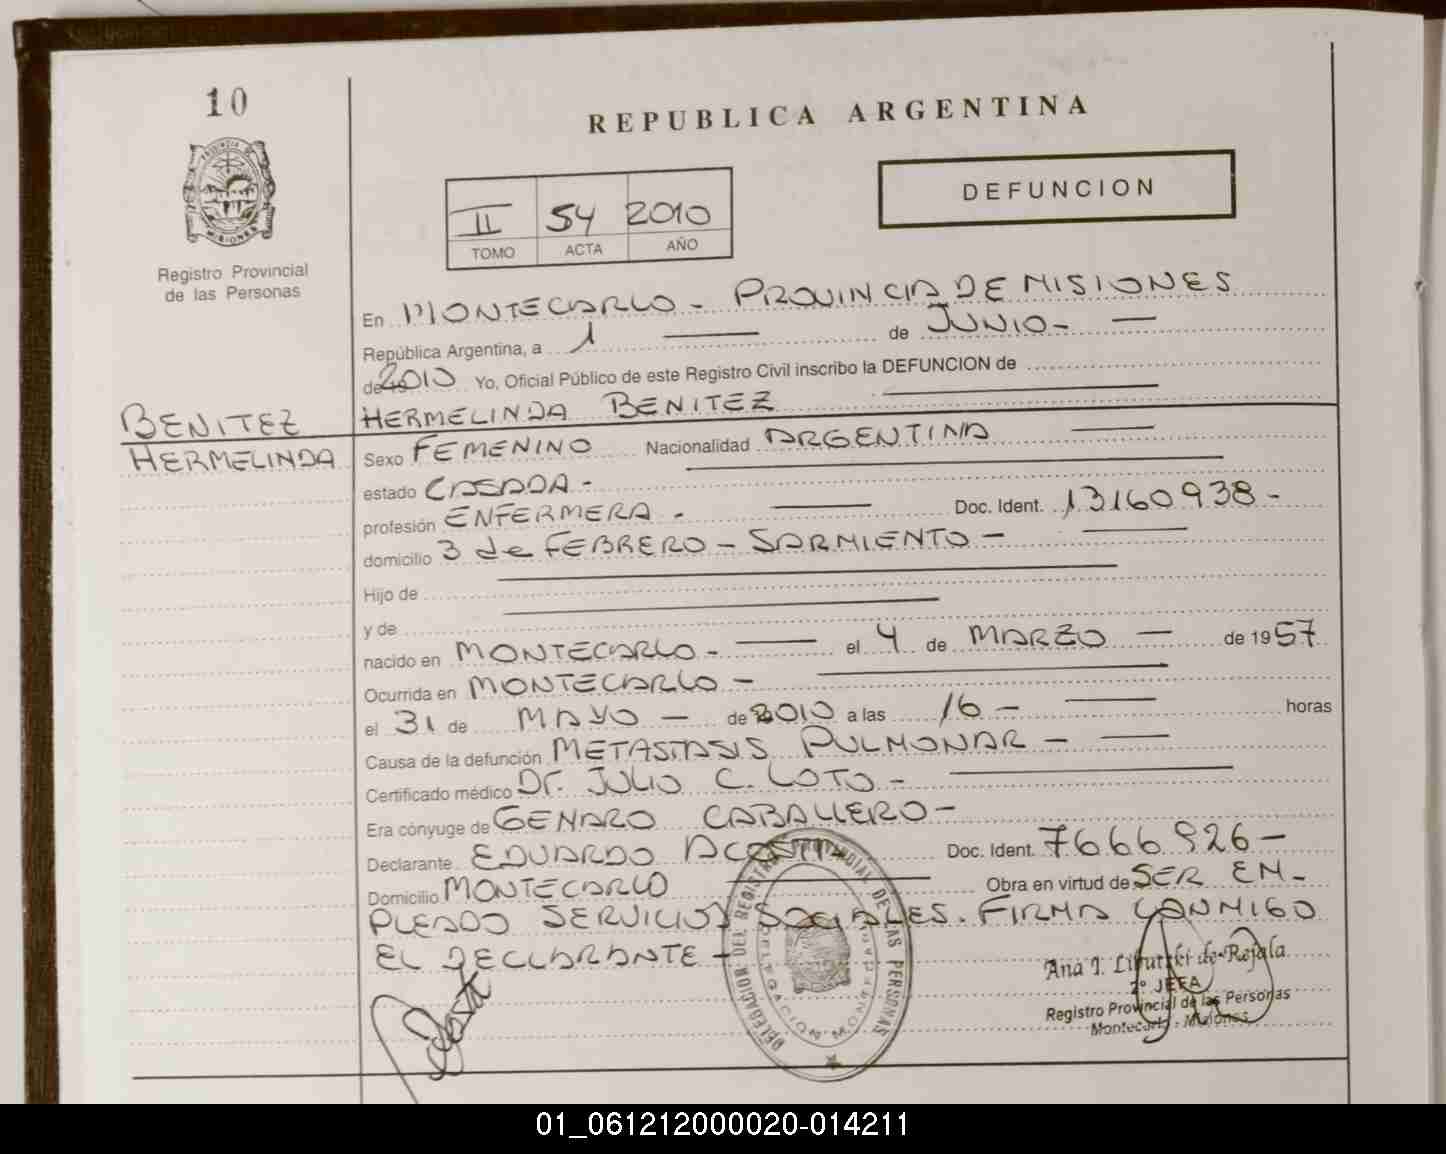 10
REPUBLICA ARGENTINA
PROVINCIA DE
MISIONES
Registro Provincial
de las Personas
II 54 2010
TOMO ACTA AÑO
DEFUNCION
En MONTECARLO - PROVINCIA DE MISIONES
República Argentina, a 1 de JUNIO -
de 2010 Yo, Oficial Público de este Registro Civil inscribo la DEFUNCION de
HERMELINDA BENITEZ
BENITEZ
HERMELINDA
Sexo FEMENINO Nacionalidad ARGENTINA
estado CASADA -
profesión ENFERMERA - Doc. Ident. 13160938 -
domicilio 3 de FEBRERO - SARMIENTO -
Hijo de
y de
nacido en MONTECARLO - el 4 de MARZO de 1957
Ocurrida en MONTECARLO -
el 31 de MAYO - de 2010 a las 16 - horas
Causa de la defunción METASTASIS PULMONAR -
Certificado médico Dr. JULIO C. LOTO -
Era cónyuge de GENARO CABALLERO -
Declarante EDUARDO ACOSTA Doc. Ident. 7666926 -
Domicilio MONTECARLO Obra en virtud de SER EM-
PLEADO SERVICIOS SOCIALES. FIRMA CONMIGO
EL DECLARANTE -
DELEGACION DEL REGISTRO PROVINCIAL DE LAS PERSONAS
DELEGACION MONTECARLO
Ana I. de Rejala
2º JEFA
Registro Provincial de las Personas
Montecarlo - Misiones
01_061212000020-014211